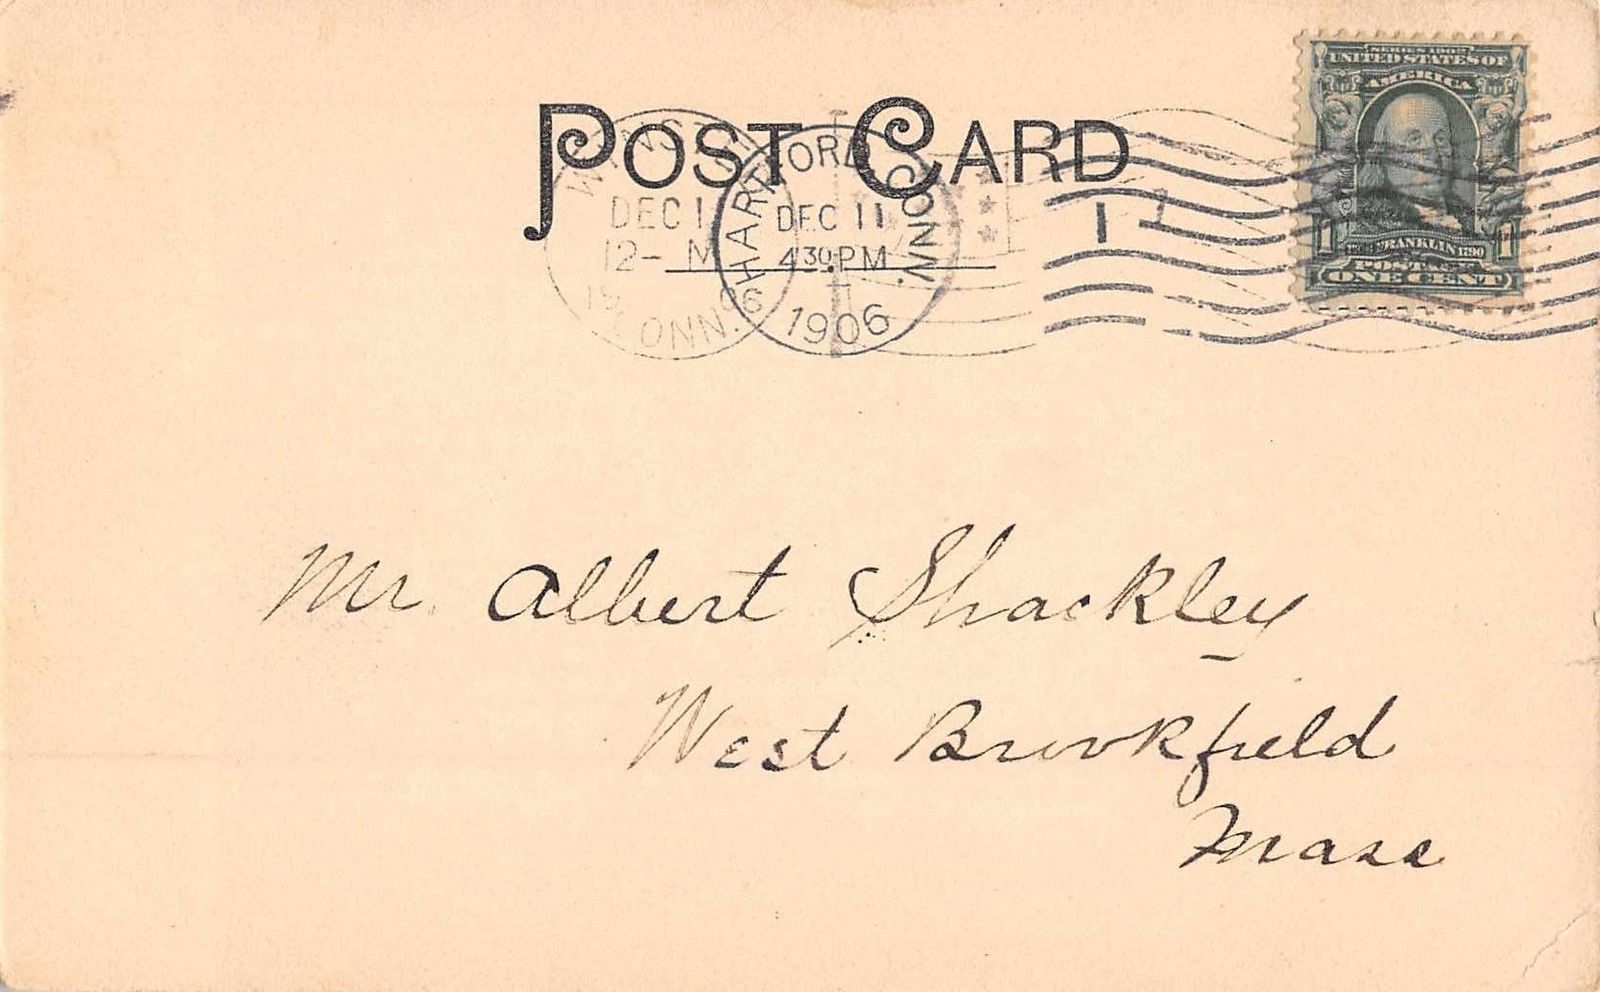 POST CARD
SERIES 1902
UNITED STATES OF
AMERICA
FRANKLIN 1790
1 1
POSTAGE
ONE CENT
WINSTED
DEC 1
12- M
CONN.
HARTFORD CONN.
DEC 11
4 30 PM
1906
1
Mr. Albert Shackley
West Brookfield
Mass